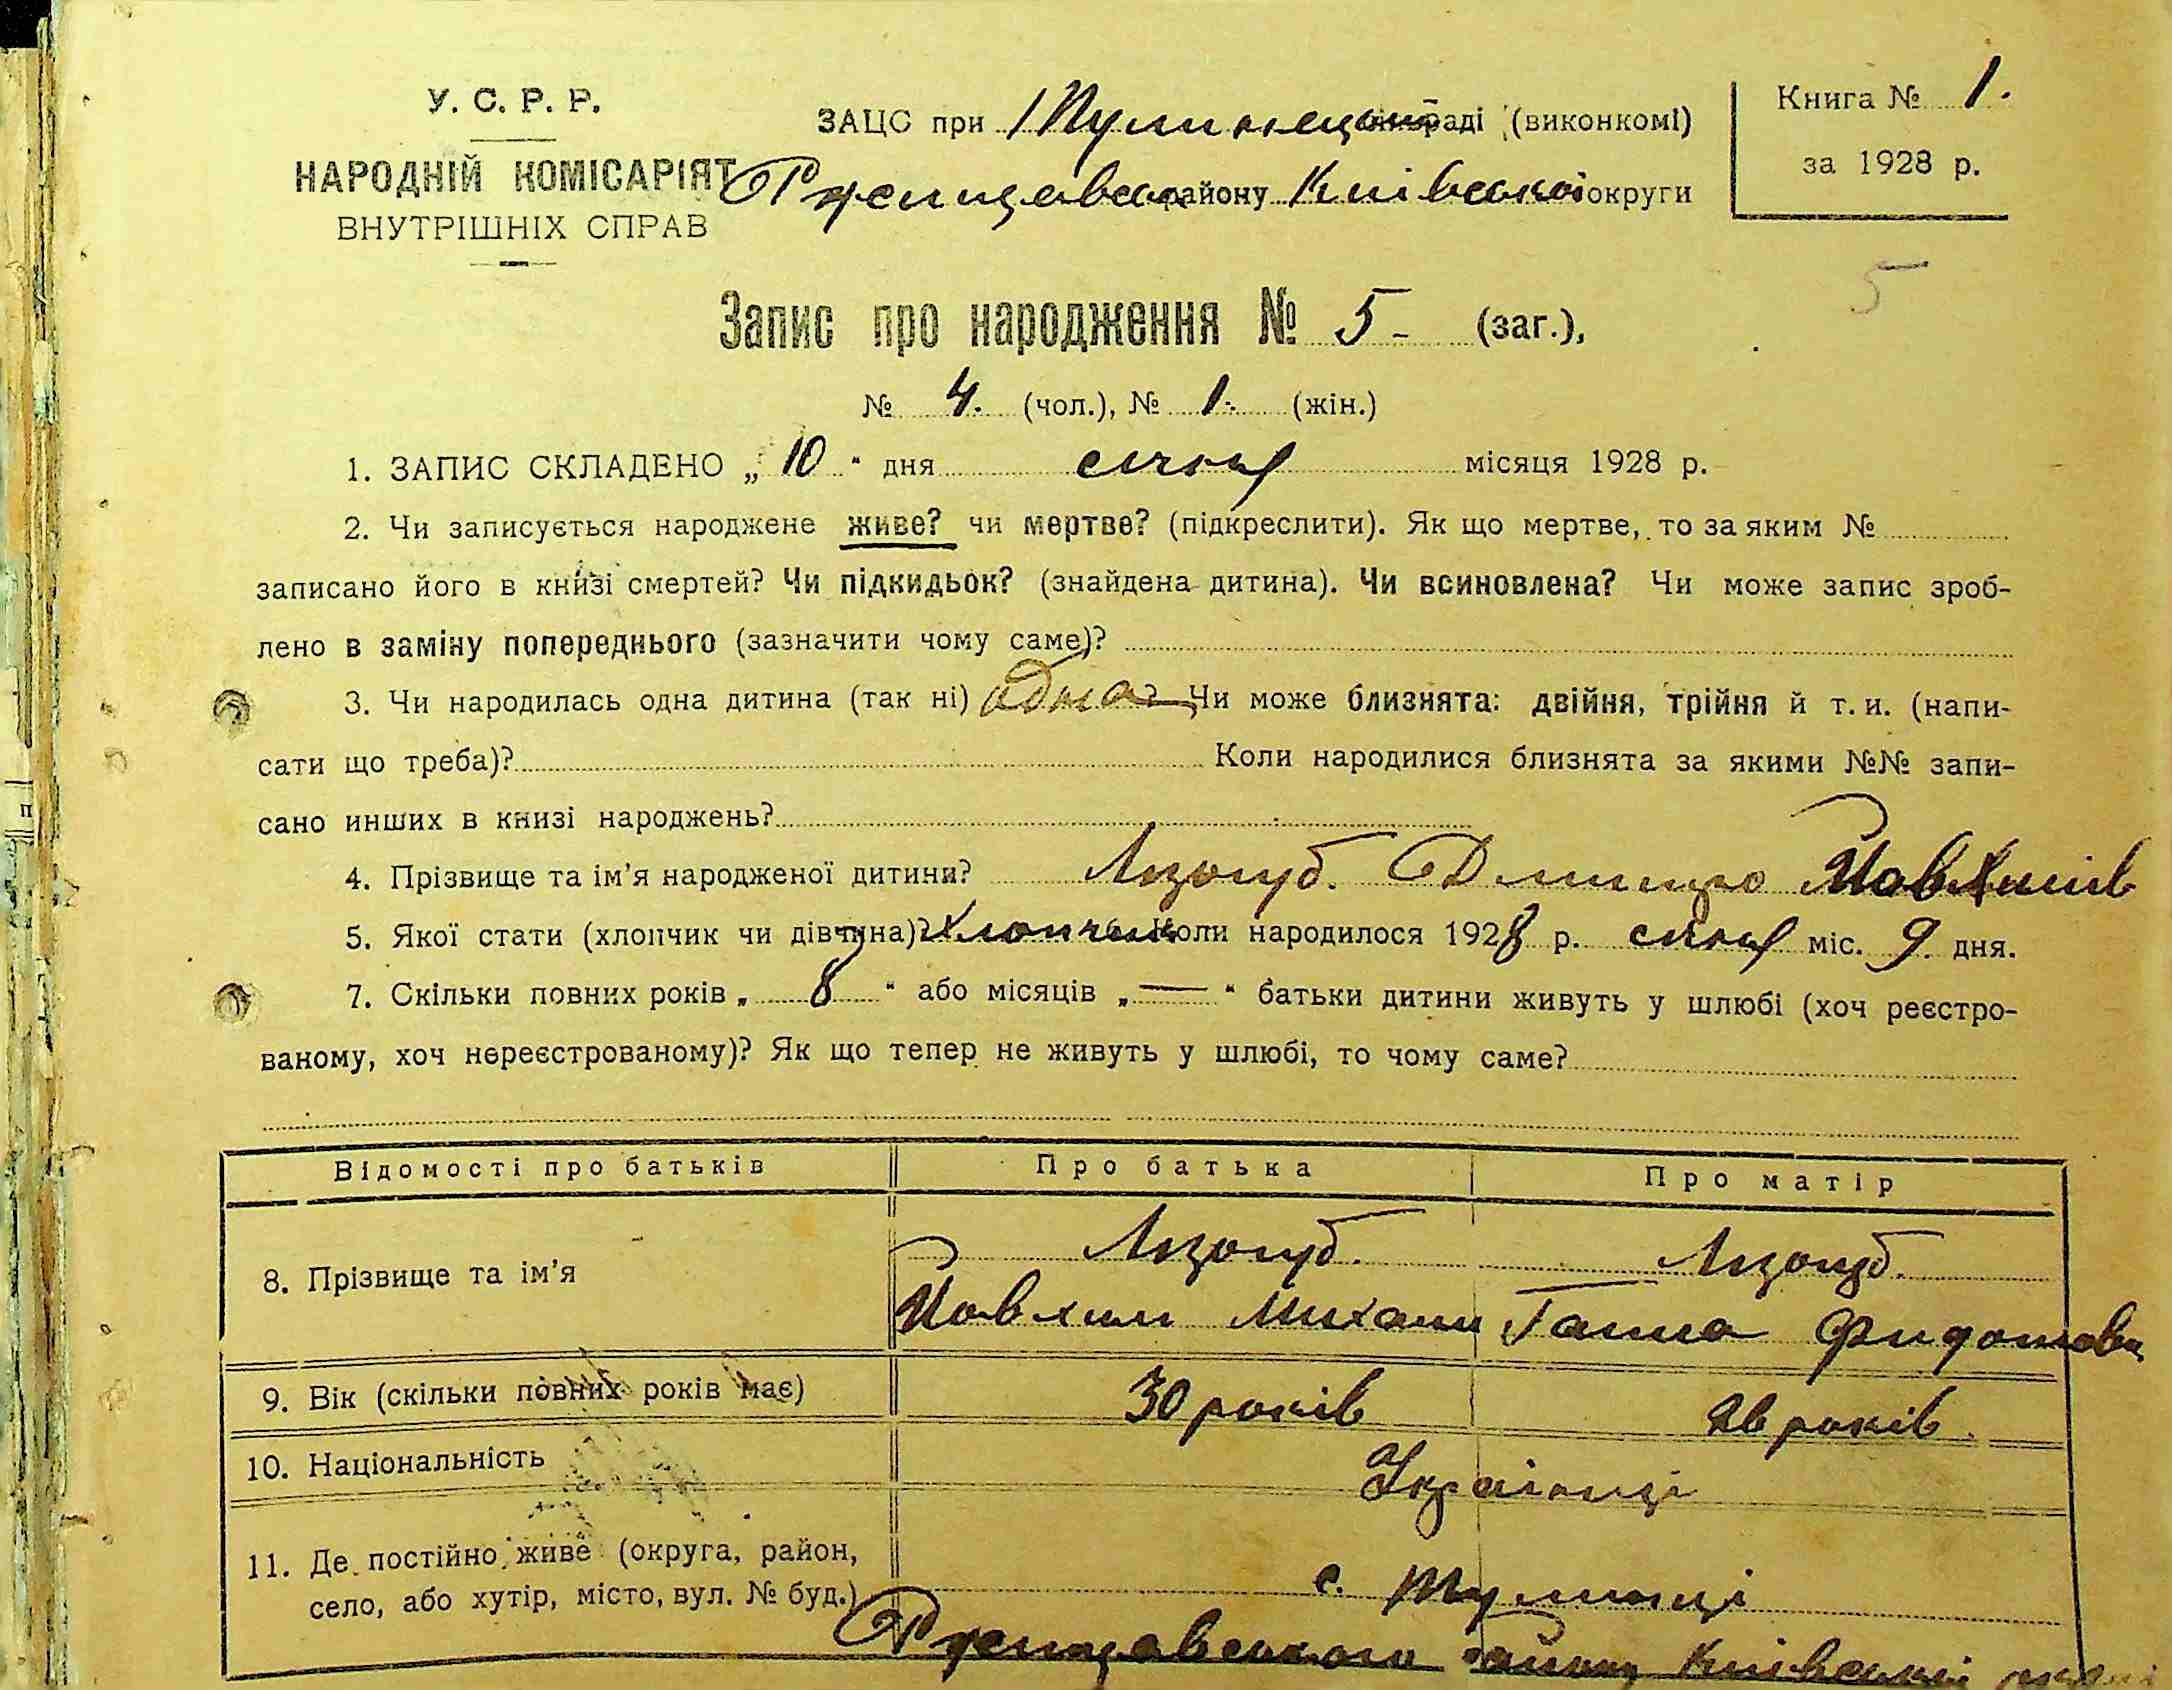 У. С. Р. Р.
НАРОДНІЙ КОМІСАРІЯТ
ВНУТРІШНІХ СПРАВ
ЗАЦС при раді (виконкомі)
району Київської округи
Книга № 1.
за 1928 р.
5
Запис про народження № 5 - (заг.),
№ 4. (чол.), № 1. (жін.)
1. ЗАПИС СКЛАДЕНО „ 10 “ дня січня місяця 1928 р.
2. Чи записується народжене живе? чи мертве? (підкреслити). Як що мертве, то за яким №
записано його в книзі смертей? Чи підкидьок? (знайдена дитина). Чи всиновлена? Чи може запис зроб-
лено в заміну попереднього (зазначити чому саме)?
3. Чи народилась одна дитина (так ні) одна Чи може близнята: двійня, трійня й т. и. (напи-
сати що треба)? Коли народилися близнята за якими №№ запи-
сано инших в книзі народжень?
4. Прізвище та ім’я народженої дитини? Лизогуб. Дмитро
5. Якої стати (хлопчик чи дівчина)? Хлопчик Коли народилося 1928 р. січня міс. 9. дня.
7. Скільки повних років „ 8 “ або місяців „ — “ батьки дитини живуть у шлюбі (хоч реєстро-
ваному, хоч нереєстрованому)? Як що тепер не живуть у шлюбі, то чому саме?
Відомості про батьків Про батька Про матір
8. Прізвище та ім’я
Лизогуб. Лизогуб.
Йовхим Михайл Ганна
9. Вік (скільки повних років має) 30 років 26 років.
10. Національність Українці
11. Де постійно живе (округа, район,
село, або хутір, місто, вул. № буд.)
с. Тулинці
району Київської